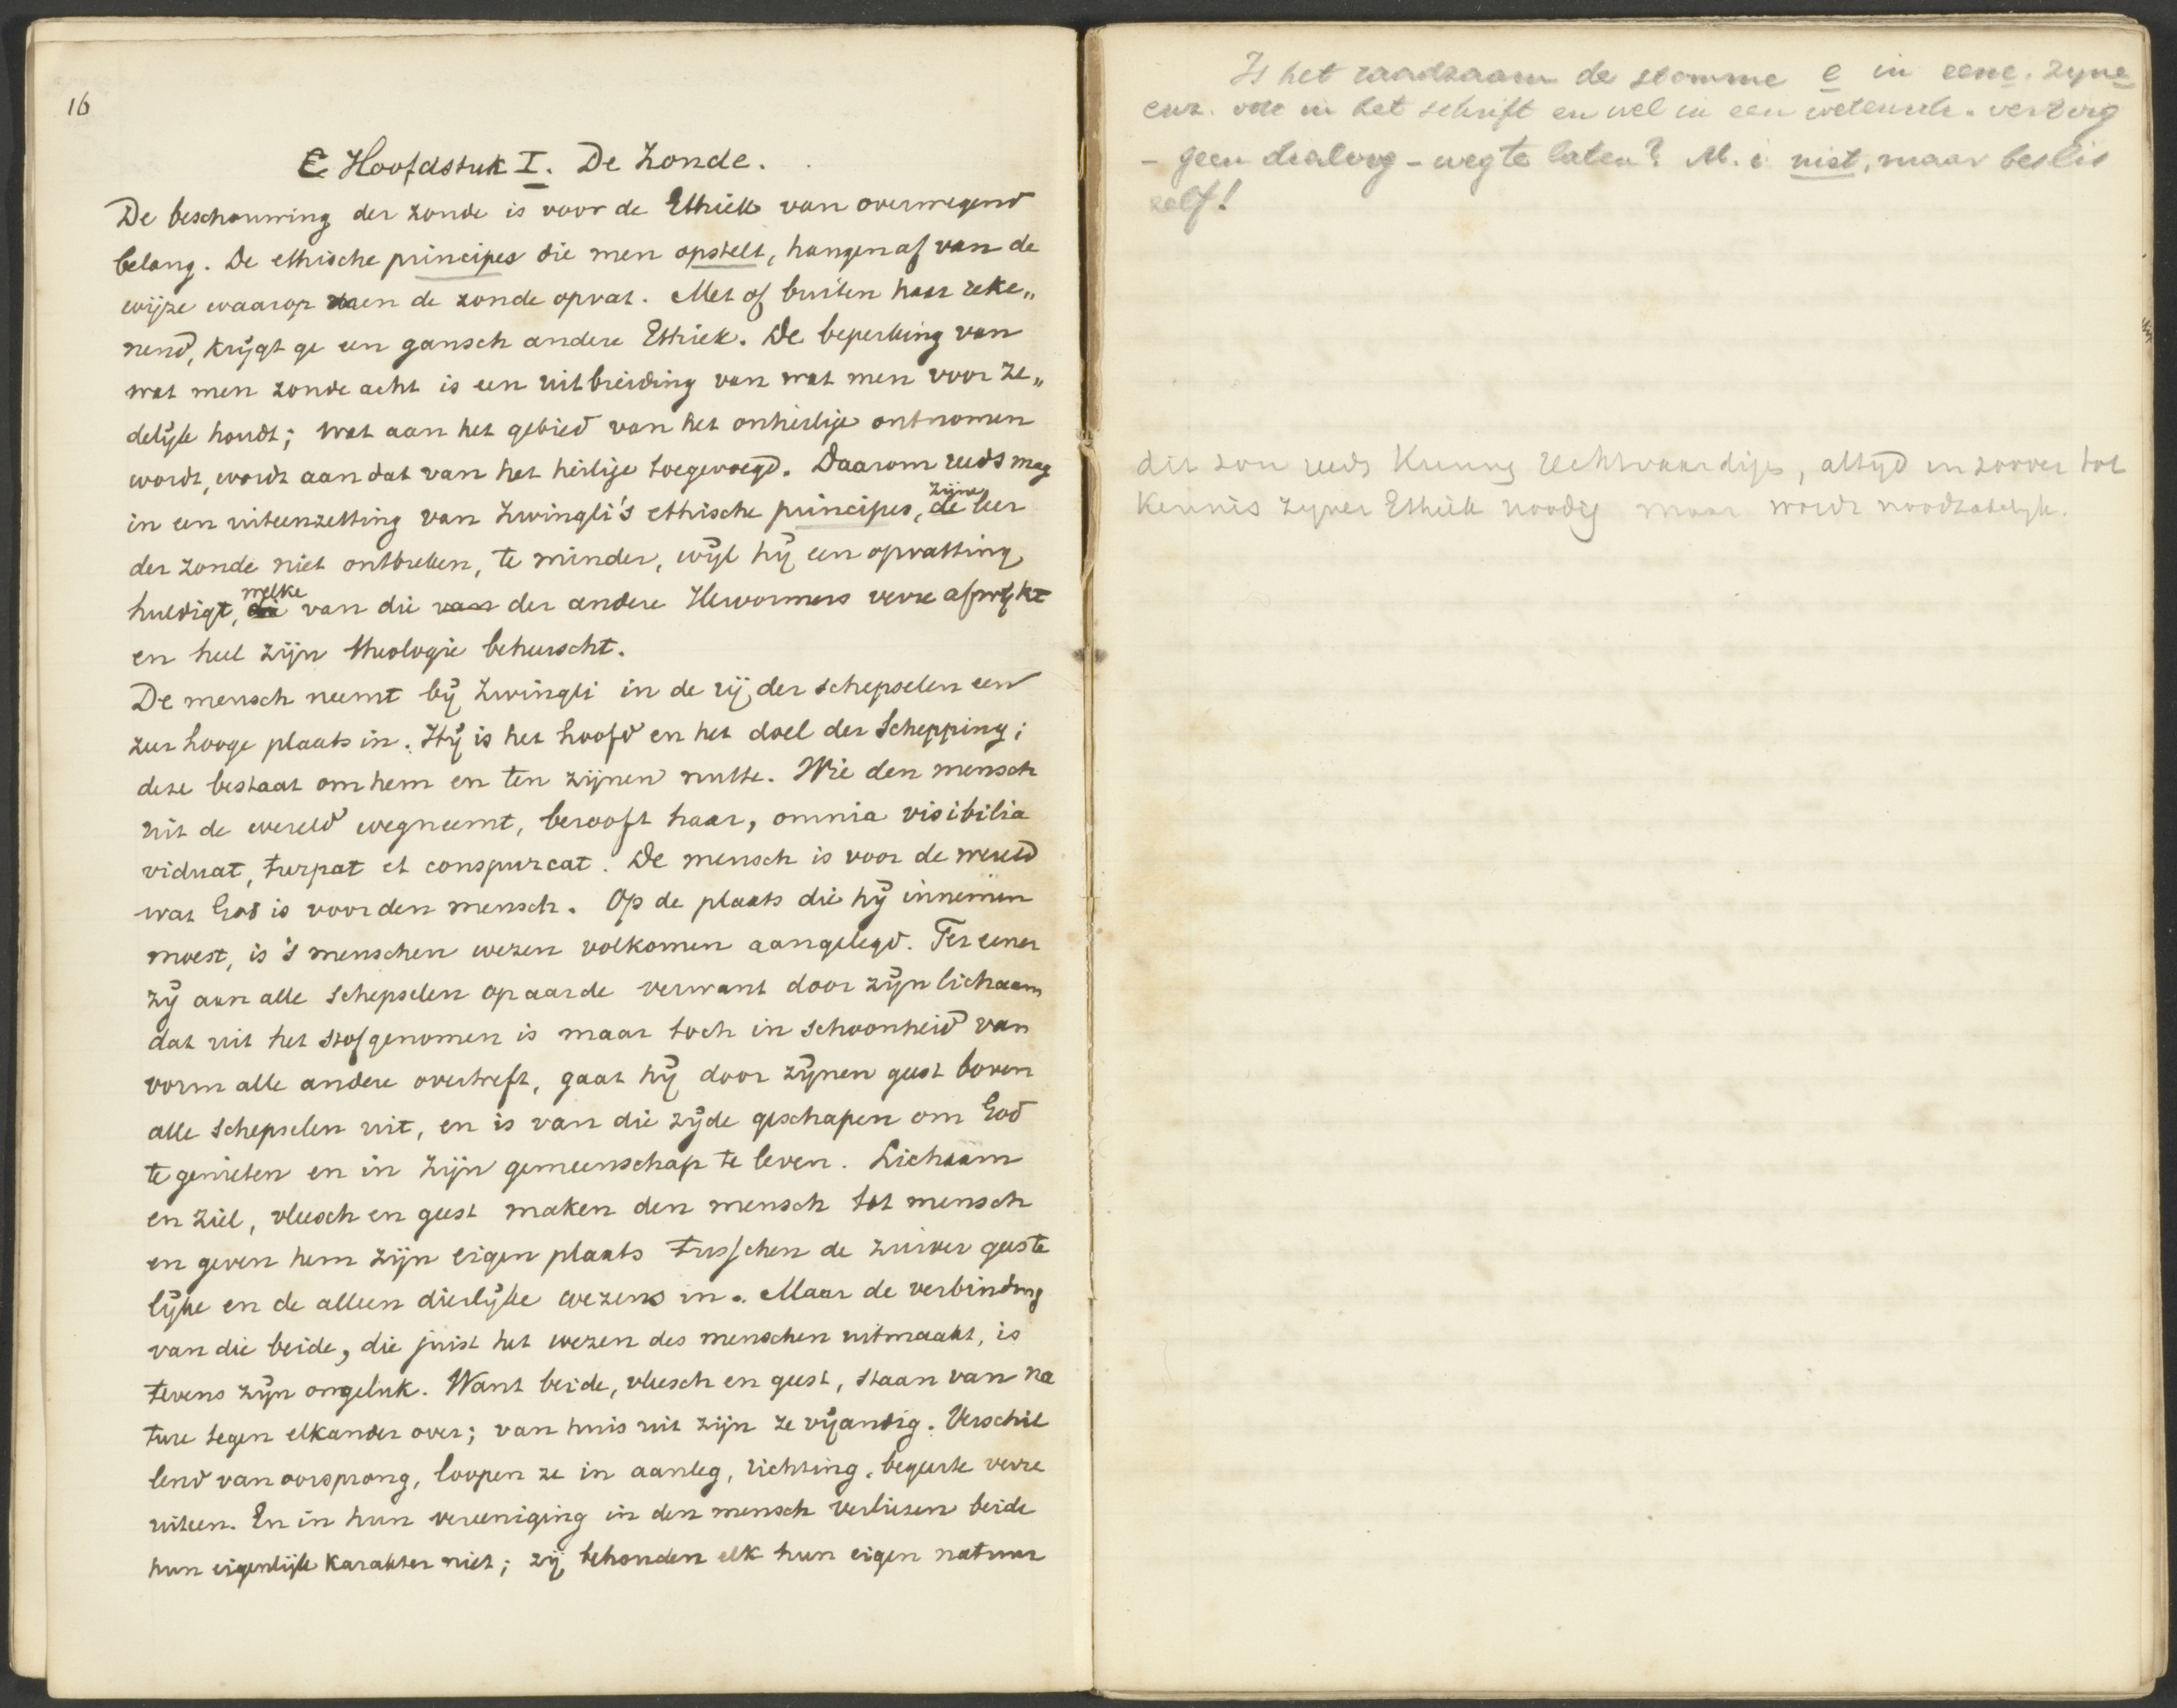 16
C Hoofdstuk I. De Zonde.
De beschouwing der zonde is voor de Ethiek van overwegend
belang. De ethische principes die men opstelt, hangen af van de
wijze waarop men de zonde opvat. Met of buiten haar reke„
nend, krijgt ge een gansch andere Ethiek. De beperking van
wat men zonde acht is een uitbreiding van wat men voor ze„
delijk houdt; wat aan het gebied van het onheilige ontnomen
wordt, wordt aan dat van het heilige toegevoegd. Daarom reeds mag
in een uiteenzetting van Zwingli's ethische principes, de zijne leer
der zonde niet ontbreken, te minder, wijl hij een opvatting
huldigt, die welke van die van der andere Hervormers verre afwijkt
en heel zijn theologie beheerscht.
De mensch neemt bij Zwingli in de rij der schepselen een
zeer hooge plaats in. Hij is het hoofd en het doel der Schepping;
deze bestaat om hem en ten zijnen nutte. Wie den mensch
uit de wereld wegneemt, berooft haar, omnia visibilia
viduat, turpat et conspurcat. De mensch is voor de wereld
wat God is voor den mensch. Op de plaats die hij innemen
moest, is 's menschen wezen volkomen aangelegd. Ter eener
zij aan alle schepselen op aarde verwant door zijn lichaam
dat uit het stof genomen is maar toch in schoonheid van
vorm alle andere overtreft, gaat hij door zijnen geest boven
alle schepselen uit, en is van die zijde geschapen om God
te genieten en in zijn gemeenschap te leven. Lichaam
en ziel, vleesch en geest maken den mensch tot mensch
en geven hem zijn eigen plaats tusschen de zuiver geeste
lijke en de alleen dierlijke wezens in. Maar de verbinding
van die beide, die juist het wezen des menschen uitmaakt, is
tevens zijn ongeluk. Want beide, vleesch en geest, staan van na
ture tegen elkander over; van huis uit zijn ze vijandig. Verschil
lend van oorsprong, loopen ze in aanleg, richting, begeerte verre
uiteen. En in hun vereeniging in den mensch verliezen beide
hun eigenlijk karakter niet; zij behouden elk hun eigen natuur
Is het raadzaam de stomme e in eene. zijne
enz. ook in het schrift en wel in een wetensch. vertoog
- geen dialoog - weg te laten? M. i. niet, maar beslis
zelf!
dit zou reeds Kennis rechtvaardigen, altijd in zoover tot
Kennis zijner Ethiek noodig maar wordt noodzakelijk.